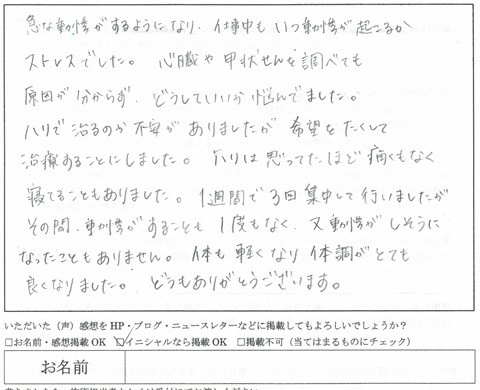 急な動悸がするようになり、仕事中もいつ動悸が起こるか
ストレスでした。 心臓や甲状せんを調べても
原因が分からず、どうしていいか悩んでました。
ハリで治るのか不安がありましたが 希望をたくして
治療することにしました。 ハリは思ってたほど痛くもなく
寝てることもありました。 1週間で3回集中して行いましたが
その間、動悸がすることも 1度もなく、又動悸がしそうに
なったこともありません。 体も軽くなり 体調がとても
良くなりました。 どうもありがとうございます。
いただいた（声）感想をHP・ブログ・ニュースレターなどに掲載してもよろしいでしょうか？
□お名前・感想掲載OK ☑イニシャルなら掲載OK □掲載不可（当てはまるものにチェック）
お名前